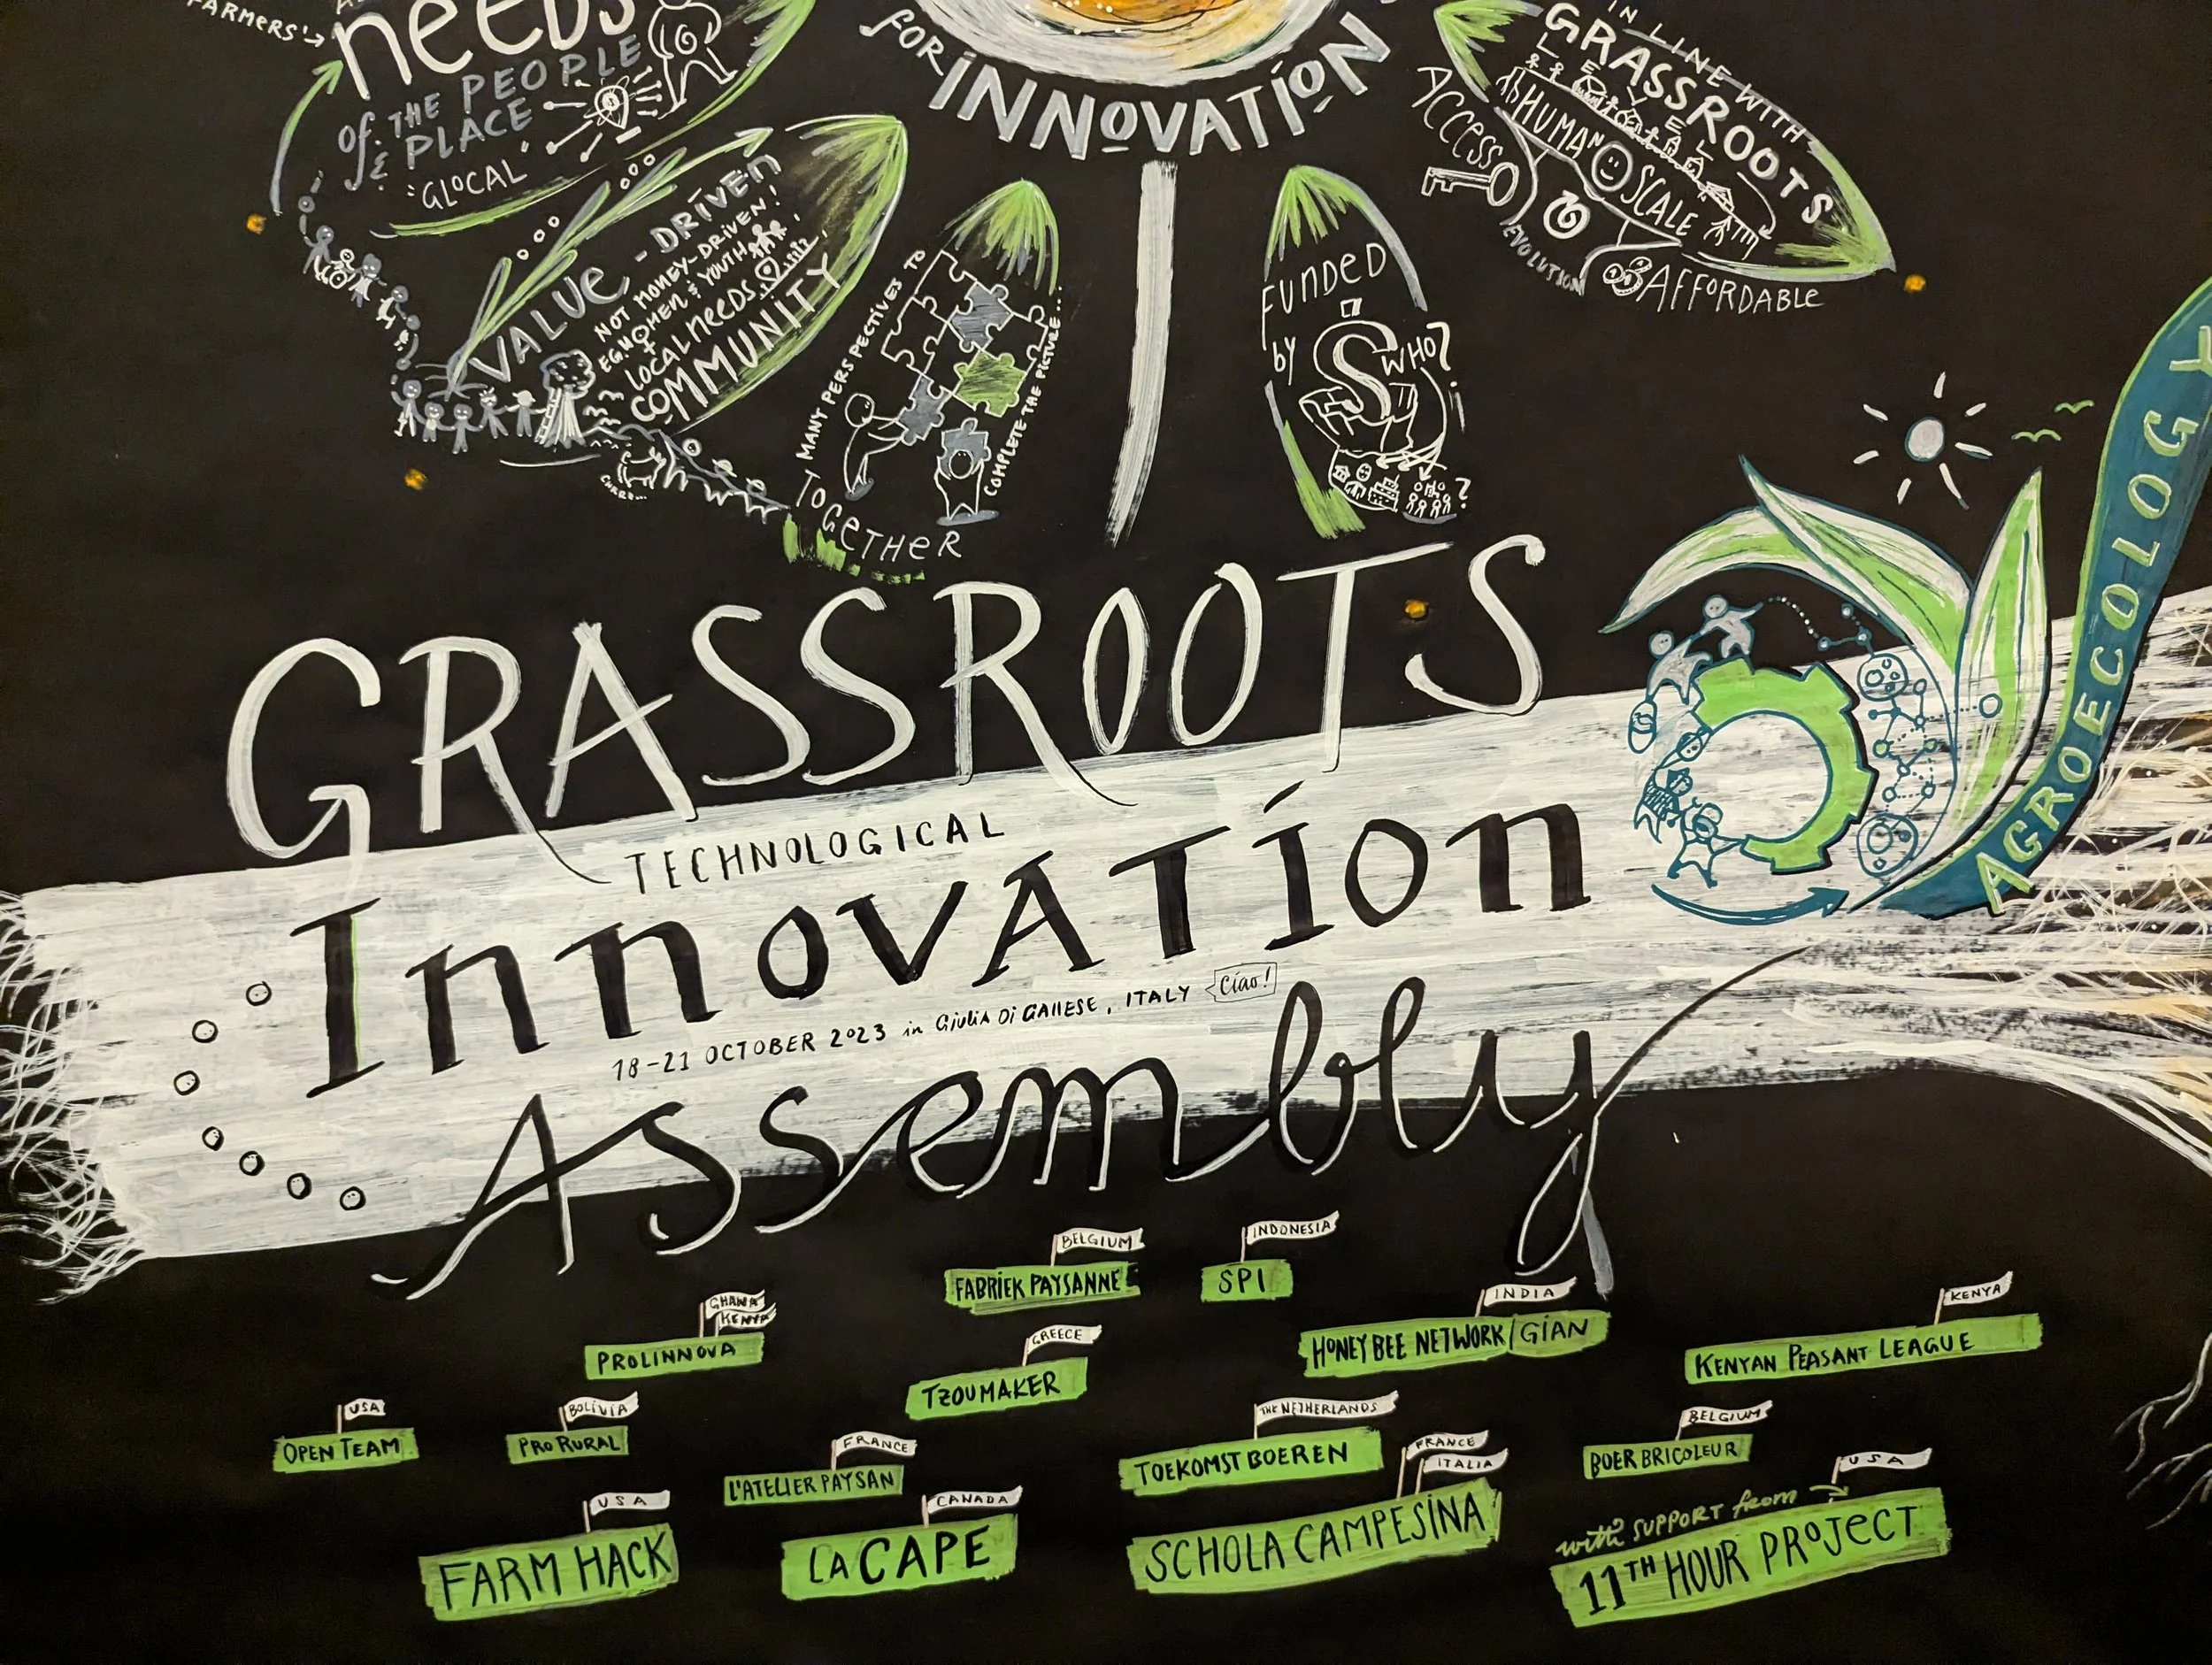 FARMERS'
NEEDS
of THE PEOPLE
& PLACE
"GLOCAL"
FOR INNOVATION
IN LINE WITH
GRASSROOTS
ACCESS
HUMAN SCALE
EVOLUTION
AFFORDABLE
VALUE-DRIVEN
NOT MONEY-DRIVEN!
EG WOMEN & YOUTH
+
LOCAL NEEDS
COMMUNITY
MANY PERSPECTIVES TO
COMPLETE THE PICTURE...
TOGETHER
FUNDED
by
WHO?
?
AGROECOLOGY
GRASSROOTS
TECHNOLOGICAL
INNOVATION
18-21 OCTOBER 2023 in GIULIA DI GALLESE, ITALY
Ciao!
ASSEMBLY
BELGIUM
FABRIEK PAYSANNE
INDONESIA
SPI
GHANA
KENYA
PROLINNOVA
GREECE
TZOUMAKER
INDIA
HONEY BEE NETWORK/GIAN
KENYA
KENYAN PEASANT LEAGUE
USA
OPEN TEAM
BOLIVIA
PRORURAL
FRANCE
L'ATELIER PAYSAN
THE NETHERLANDS
TOEKOMSTBOEREN
BELGIUM
BOER BRICOLEUR
USA
FARM HACK
CANADA
LA CAPE
FRANCE
ITALIA
SCHOLA CAMPESINA
USA
with SUPPORT from
11TH HOUR PROJECT